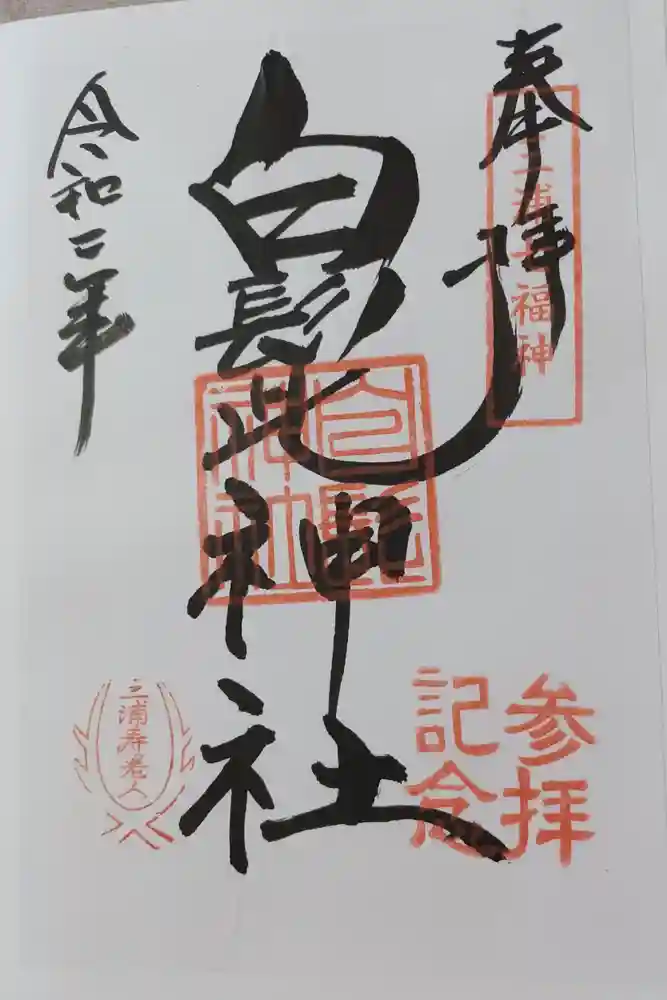 奉拝
三浦七福神
白髭神社
白髭神社
令和二年
参拝
記念
三浦寿老人